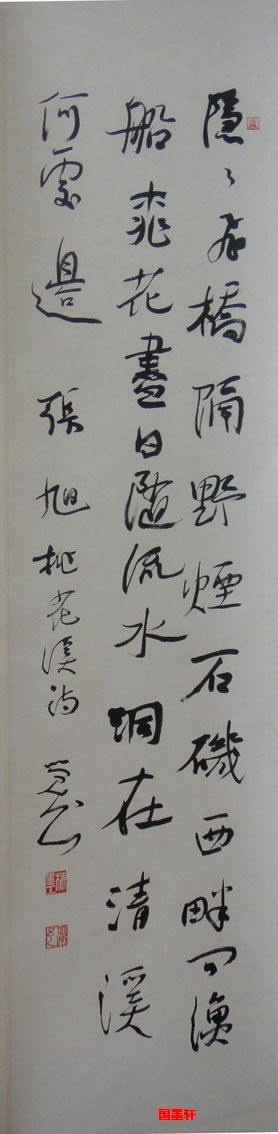 隱々飛橋隔野煙石磯西畔問漁
船桃花盡日隨流水洞在清溪
何處邊 張旭桃花溪詩
国墨轩